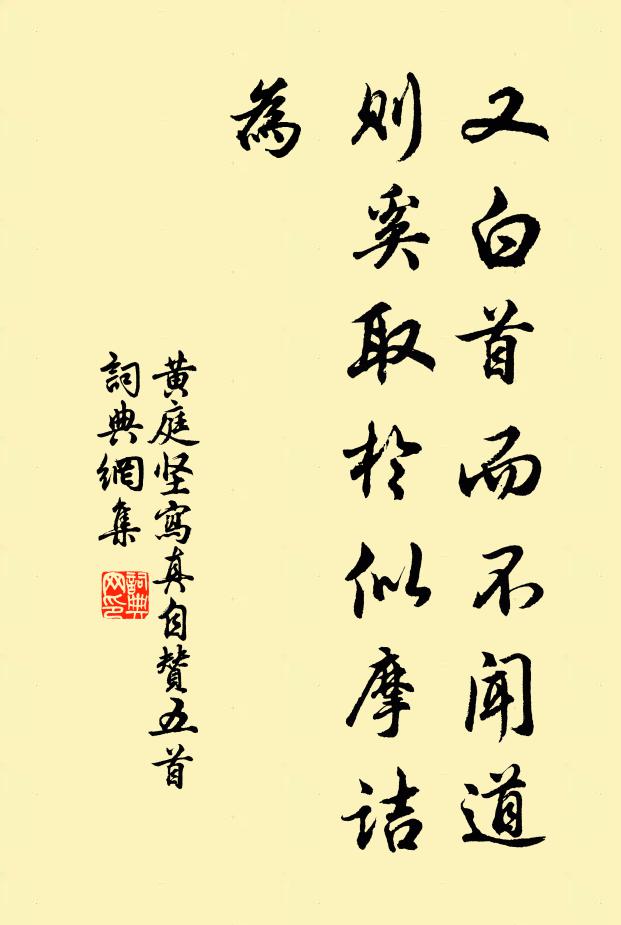 又白首而不闻道
则奚取於似摩诘
為
黄庭坚寫真自赞五首
詞典網集
詞典
网印